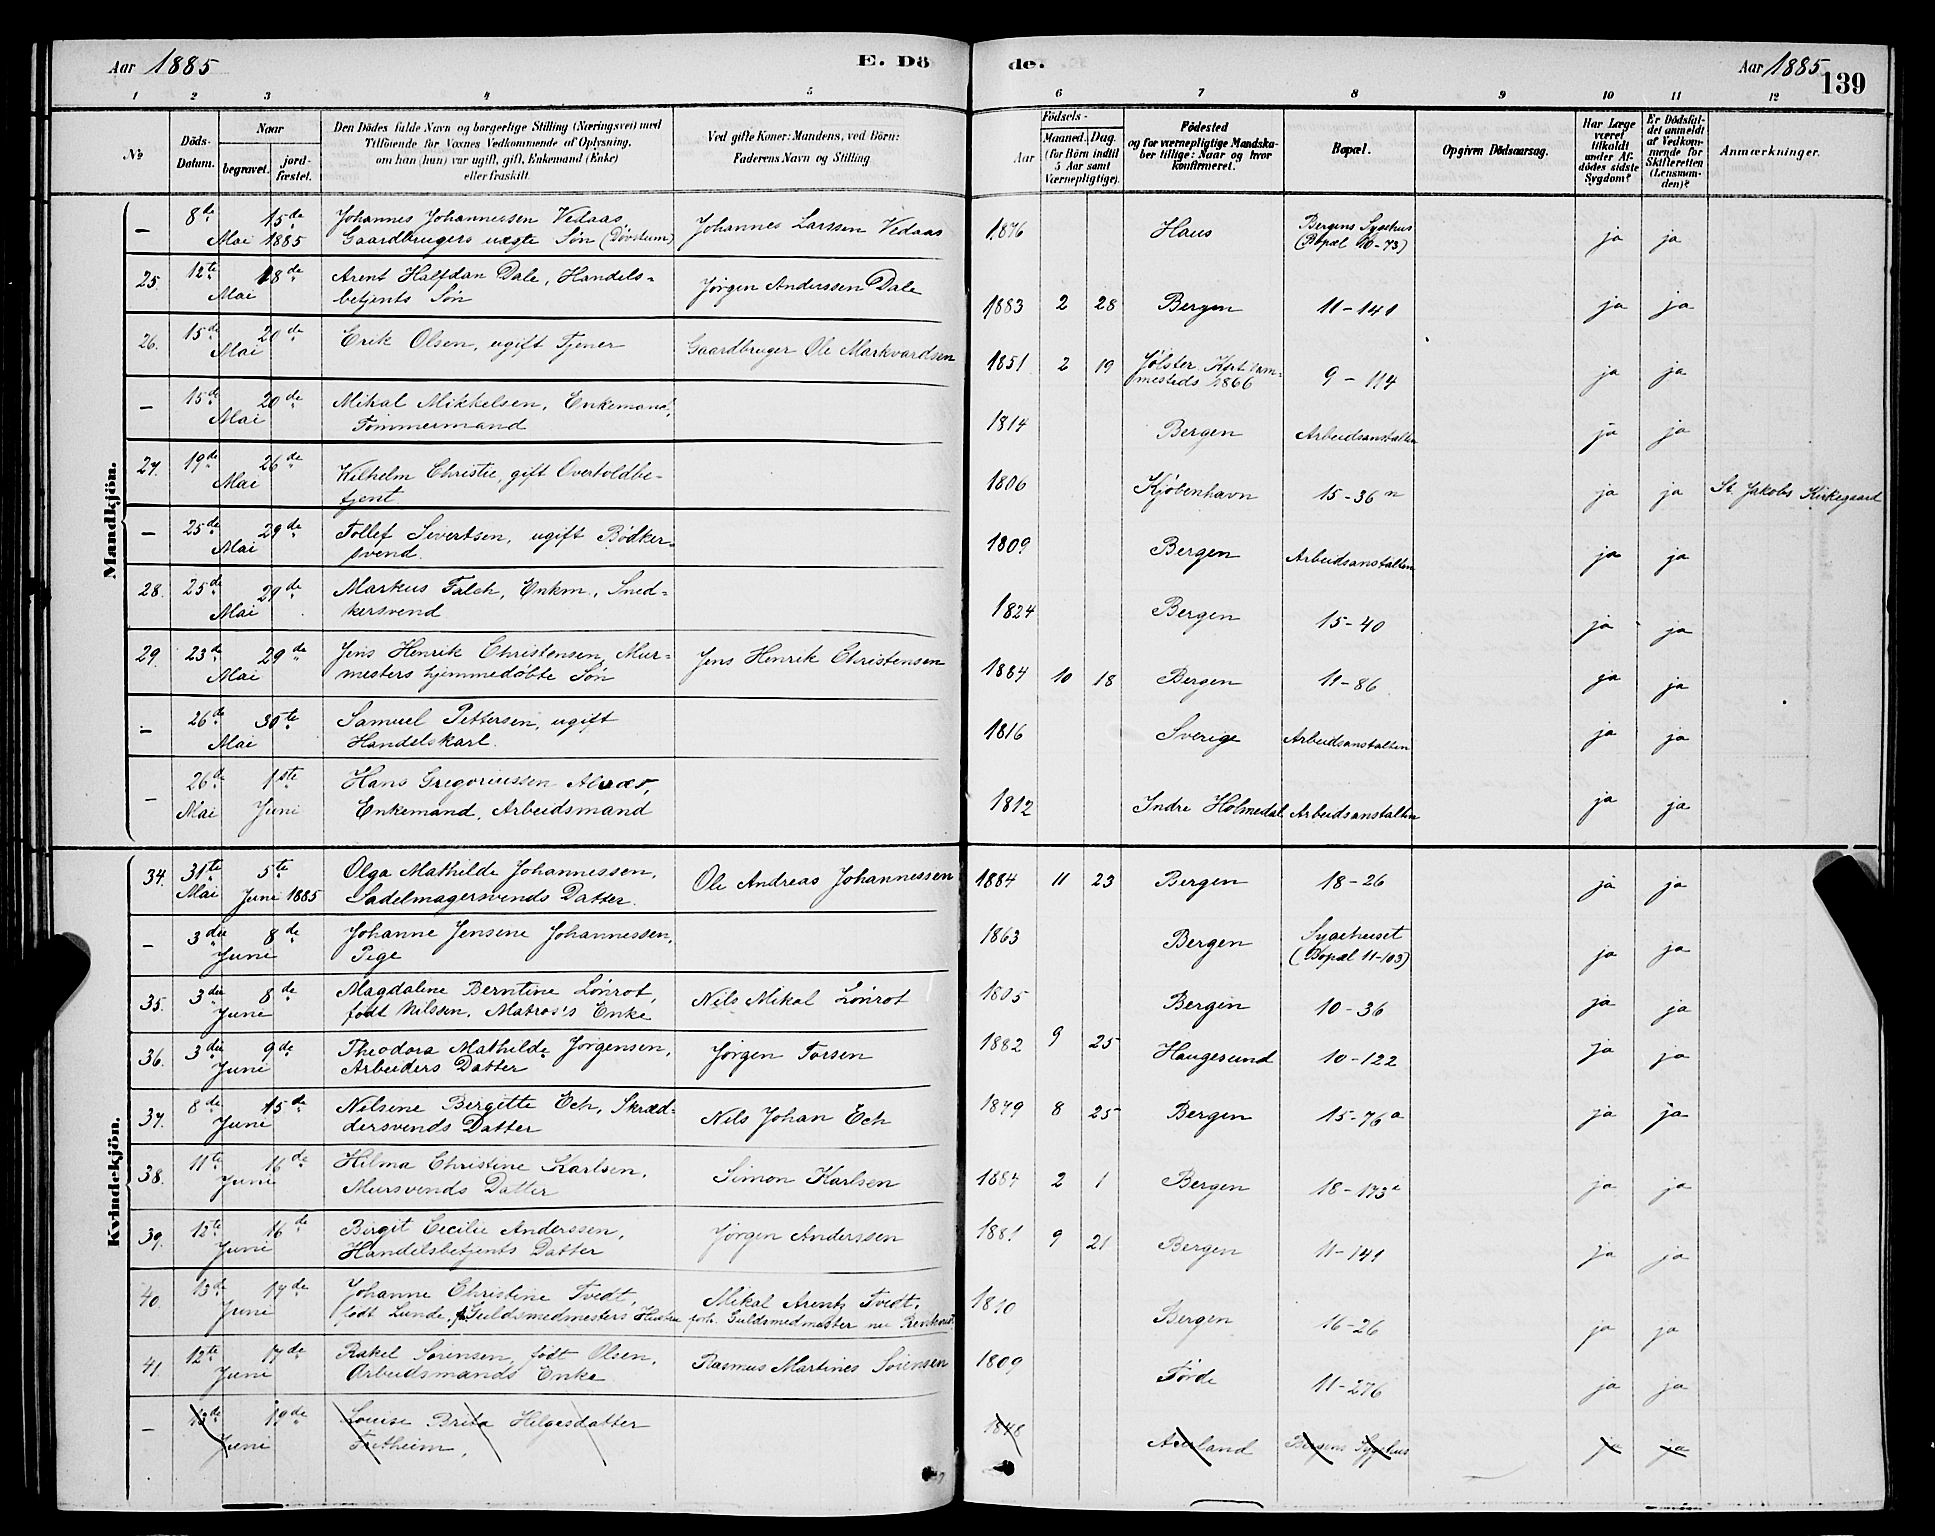 Aar 1885 E. Dö
de. Aar 1885 139
1 2 3 4 5 6 7 8 9 10 11 12
Nº
Döds-
Datum.
Naar
begravet. jord-
fæstet.
Den Dödes fulde Navn og borgerlige Stilling (Næringsvei) med
Tilföiende for Voxnes Vedkommende af Oplysning,
om han (hun) var ugift, gift, Enkemand (Enke)
eller fraskilt.
Ved gifte Koner: Mandens, ved Börn:
Faderens Navn og Stilling
Födsels-
Aar Maaned. Dag.
(for Börn indtil
5 Aar samt
Værnepligtige).
Födested
og for værnepligtige Mandska-
ber tillige: Naar og hvor
konfirmeret.
Bopæl.
Opgiven Dödsaarsag.
Har Læge
været
tilkaldt
under Af-
dödes sidste
Sygdom?
Er Dödsfal-
det anmeldt
af Vedkom-
mende for
Skifteretten
(Lensman-
den)?
Anmærkninger.
Mandkjön.
— 8de Mai 15de 1885 Johannes Johannersen Vedaas, Johannes Larssen Vedaas 1876 Haus Bergens Sygehus ja ja
Gaardbrugers uægte Søn (Døvstum) (Bopæl 10-73)
25. 12te Mai 18de Arent Halfdan Dale, Handels- Jørgen Anderssen Dale 1883 2 28 Bergen 11-141 ja ja
betjents Søn
26. 15de Mai 20de Erik Olsen, ugift Tjener Gaardbruger Ole Markvardsen 1851 2 19 Jølster Kft. sam- 9-114 ja ja
mesteds 1866
— 15de Mai 20de Mikal Mikkelsen, Enkemand, 1814 Bergen Arbeidsanstalten ja ja
Tømmermand
27. 19de Mai 26de Wilhelm Christie, gift Overtoldbe- 1806 Kjøbenhavn 15-36n ja ja St. Jakobs Kirkegaard
tjent
— 25de Mai 29de Tollef Sivertsen, ugift Bødker- 1809 Bergen Arbeidsanstalten ja ja
svend.
28. 25de Mai 29de Markus Falch, Enkm., Sned- 1824 Bergen 15-40 ja ja
kersvend
29. 23de Mai 29de Jens Henrik Christensen, Mur- Jens Henrik Christensen 1884 10 18 Bergen 11-86 ja ja
mesters hjemmedøbte Søn
— 26de Mai 30te Samuel Pettersen, ugift 1816 Sverige Arbeidsanstalten ja ja
Handelskarl.
— 26de Mai 1ste Juni Hans Gregoriussen 1812 Indre Holmedal Arbeidsanstalten ja ja
Enkemand, Arbeidsmand
Kvindekjön.
34. 31te Mai 5te Juni 1885 Olga Mathilde Johannessen, Ole Andreas Johannessen 1884 11 23 Bergen 18-26 ja ja
Sadelmagersvends Datter.
— 3die Juni 8de Johanne Jensine Johannessen, 1863 Bergen Sygehuset ja ja
Pige (Bopæl 11-103)
35. 3die Juni 8de Magdaline Berntine Lönrot, Nils Mikal Lönrot 1805 Bergen 10-36 ja ja
født Nilssen, Matros's Enke
36. 3die Juni 9de Theodora Mathilde Jørgensen, Jørgen Torsen 1882 9 25 Haugesund 10-122 ja ja
Arbeiders Datter
37. 8de Juni 15de Nilsene Bergitte Ech, Skræd- Nils Johan Ech 1879 8 25 Bergen 15-76a ja ja
dersvends Datter
38. 11te Juni 16de Hilma Christine Karlsen, Simon Karlsen 1884 2 1 Bergen 18-173a ja ja
Mursvends Datter
39. 12te Juni 16de Birgit Cecilie Anderssen, Jørgen Anderssen 1881 9 21 Bergen 11-141 ja ja
Handelsbetjents Datter
40. 13de Juni 17de Johanne Christine Tvedt, Mikal Arentz Tvedt, 1810 Bergen 16-26 ja ja
født Lunde, Guldsmedmesters Hustru forh. Guldsmedmester nu
41. 12te Juni 17de Rakel Sørensen, født Olsen, Rasmus Martines Sørensen 1809 Førde 11-276 ja ja
Arbeidsmands Enke
— 13de Juni 19de Louise Brita Helgesdatter 1848 Aurland Bergens Sygehus ja ja
Fretheim,